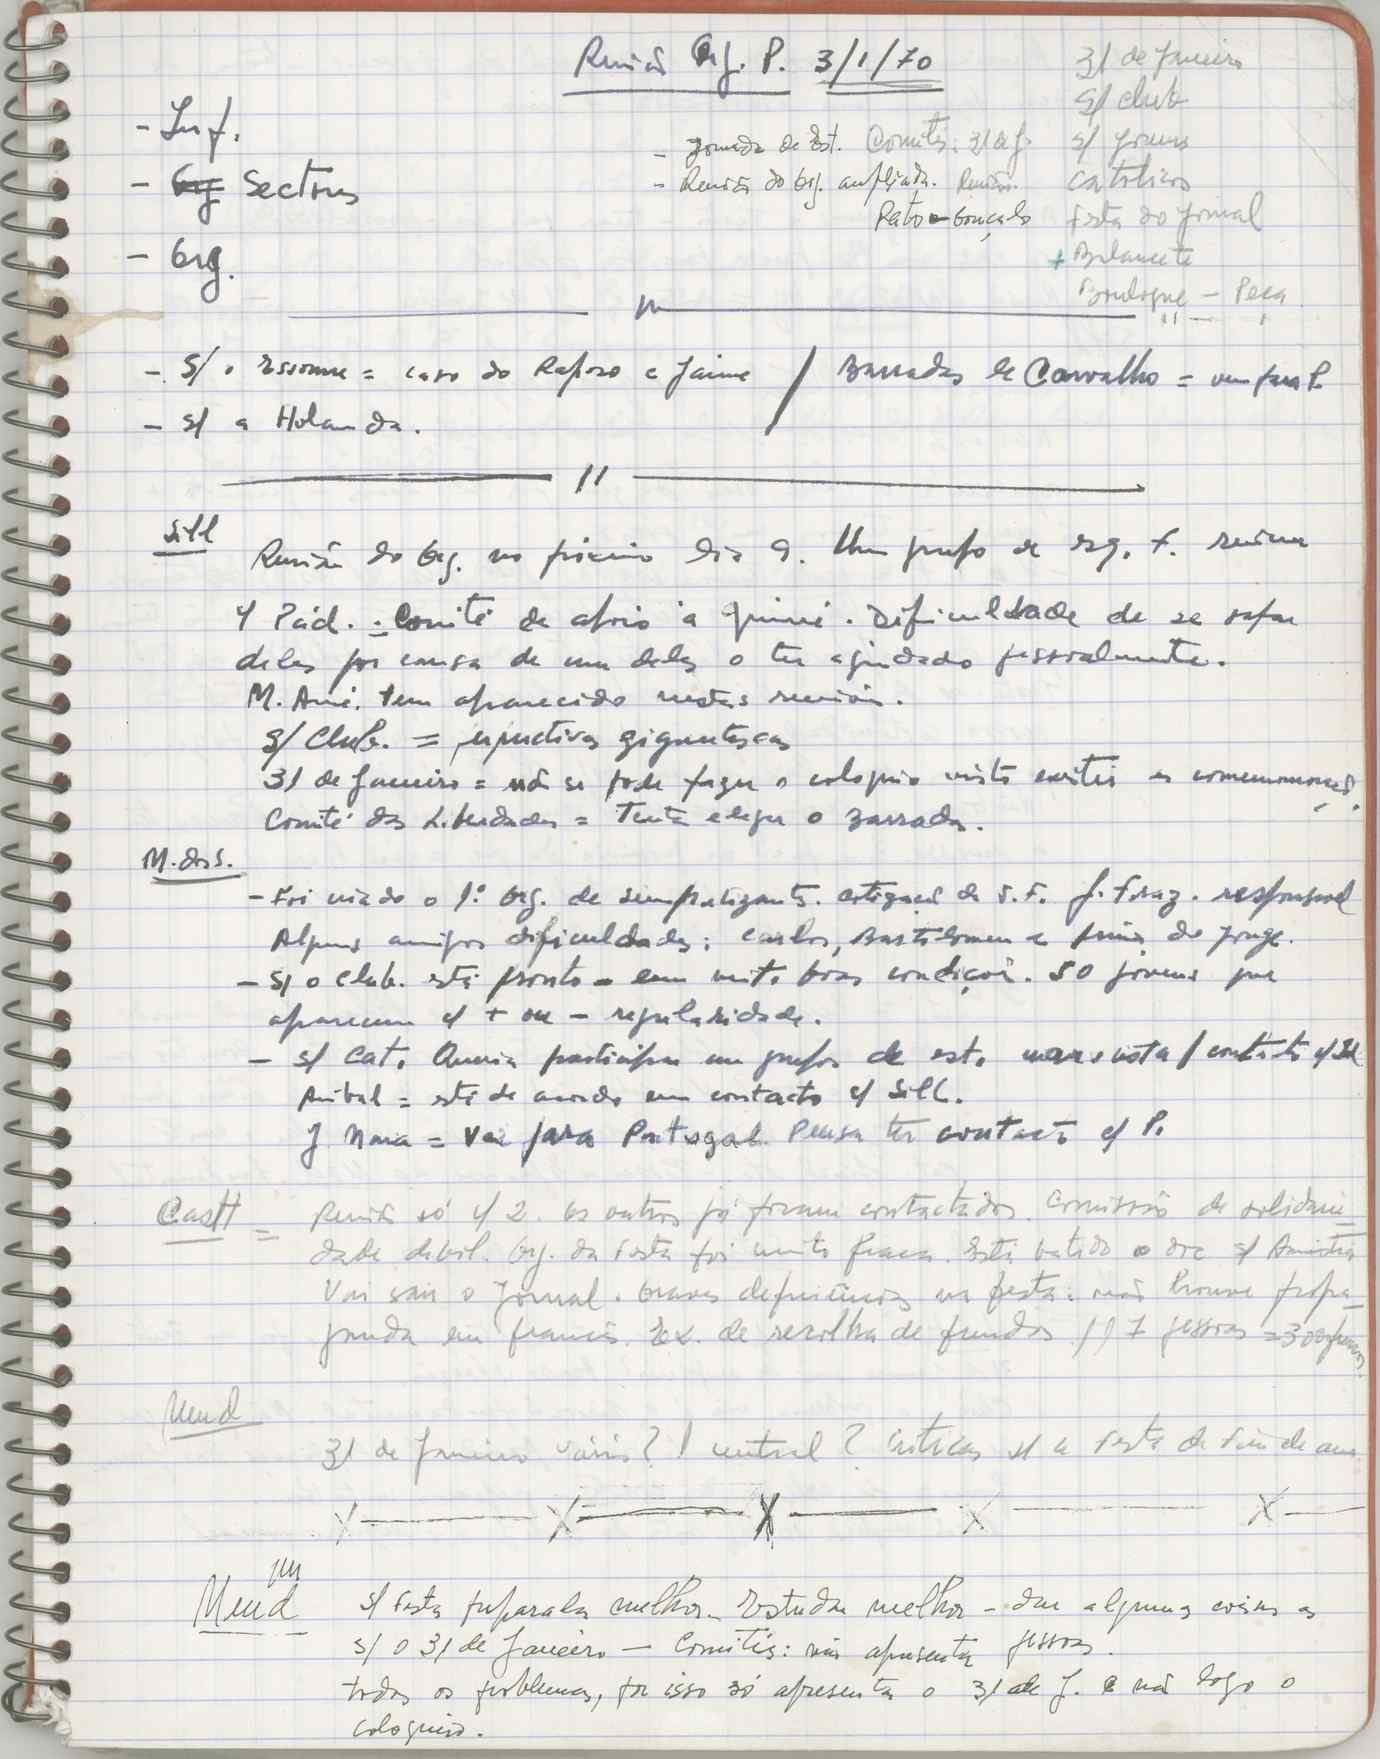 Reunião Org. P. 3/1/70
31 de Janeiro
s/ club
s/ jovens
católicos
Festa do Jornal
+ Balancete
Boulogne — Peça
- Inf.
- Org Sectores
- Org.
- Jornada de Est. Comités: 31 de J.
- Reunião do Org. ampliada. Reunião.
Pato - Gonçalo
- s/ o Essonne = caso do Raposo e Jaime / Barradas de Carvalho = vem para P.
- s/ a Holanda.
Sill
Reunião do Org. no próximo dia 9. Um grupo de esq. f. reúne
c/ Pád. - Comité de apoio à Guiné. Dificuldade de se safar
deles por causa de um deles o ter ajudado pessoalmente.
M. Ant. tem aparecido nestas reuniões.
s/ Club. = perspectivas gigantescas
31 de Janeiro = não se pode fazer o coloquio visto existir as comemorações.
Comité das Liberdades = Tenta eleger o Barradas.
M. dos S.
- Foi criado o 1º Org. de simpatizantes. cotização de 5. F. J. Ferraz. responsável
Alguns amigos dificuldades: Carlos, Bartolomeu e primo do Jorge.
- s/ o club. está pronto - em muito boas condições. 50 jovens que
aparecem c/ + ou - regularidade.
- s/ Cat. Queria participar em grupos de est. marxista / contacto c/
Anibal = está de acordo em contacto c/ Sill.
J Maria = Vai para Portugal. Pensa ter contacto c/ P.
Cast =
Reunião só c/ 2. os outros já foram contactados. Comissão de solidarie-
dade debil. Org. da Festa foi muito fraca. Está batido o doc s/ Amnistia
Vai sair o Jornal. Graves deficiencias na festa: não houve propa-
ganda em francês. Ex. de recolha de fundos // 7 pessoas = 300 francos.
Mend
31 de Janeiro vários? 1 central? Criticas s/ a Festa de Fim de ano.
Mend
s/ Festa preparada melhor. Estudar melhor - dar algumas coisas as
pessoas.
s/ o 31 de Janeiro — Comités: não apresentar
todos os problemas, por isso só apresentar o 31 de J. e não logo o
coloquio.